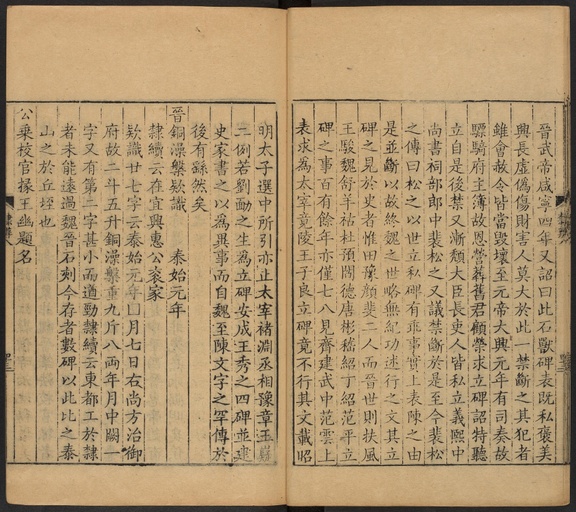 晉武帝咸寧四年又詔曰此石獸碑表既私褒美
興長虛偽傷財害人莫大於此一禁斷之其犯者
雖會赦令皆當毀壞至元帝大興元年有司奏故
驃騎府主簿故恩營葬舊君顧榮求立碑詔特聽
立自是後禁又漸頹大臣長吏人皆私立義熙中
尚書祠部郎中裴松之又議禁斷於是至今裴松
之傳曰松之以世立私碑有乖事實上表陳之由
是並斷以故終魏之世略無紀功述行之文其立
碑之見於史者惟田豫顏斐二人而晉世則扶風
王駿魏舒羊祜杜預闕德唐彬嵇紹丁紹范平立
碑之事百有餘年亦僅七八見齊建武中范雲上
表求為太宰竟陵王子良立碑竟不行其文載昭
明太子選中所引亦止太宰褚淵丞相豫章王嶷
二例若劉勔之生為立碑安成王秀之四碑並建
史家書之以為異事而自魏至陳文字之罕傳於
後有繇然矣
晉銅澡槃欵識 泰始元年
隸續云在宜興惠公袤家
欵識廿七字云泰始元年囗月七日右尚方治御
府故二斗五升銅澡槃重九斤八兩年月中闕一
字又有第二字甚小而遒勁隸續云東都工於隸
者未能遠過魏晉石刻今存者數碑以此比之泰
山之於丘垤也
公乘校官掾王幽題名